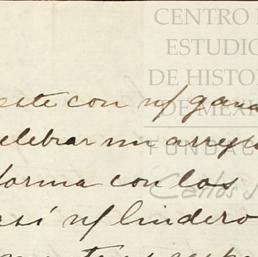 CENTRO D
ESTUDIO
DE HISTO
DE MÉXI
FUNDAC
Carlos S
site con n/ gana
celebrar un arregl
forma con los
así n/ lindero